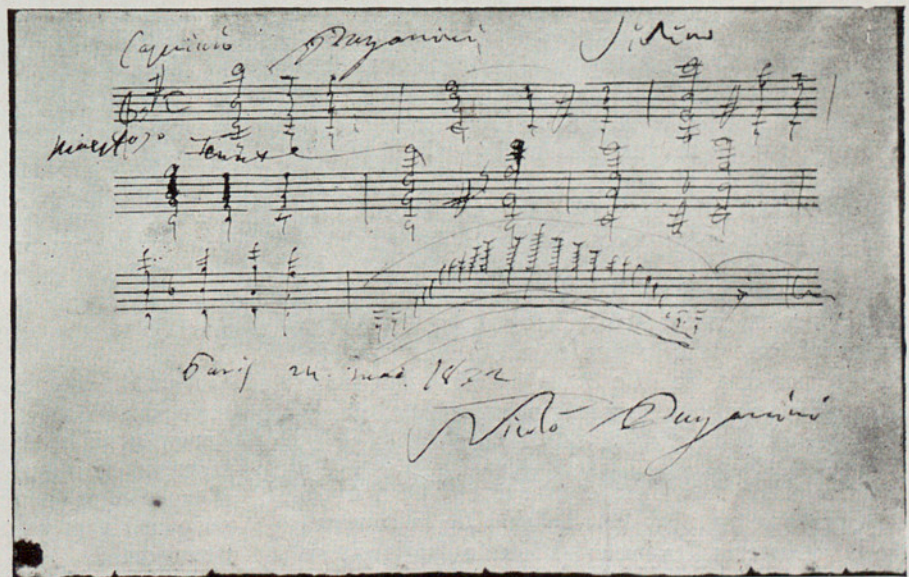 Capriccio Paganini Violino
Maestoso Tenute
Paris 24. mai. 1832
Nicolò Paganini